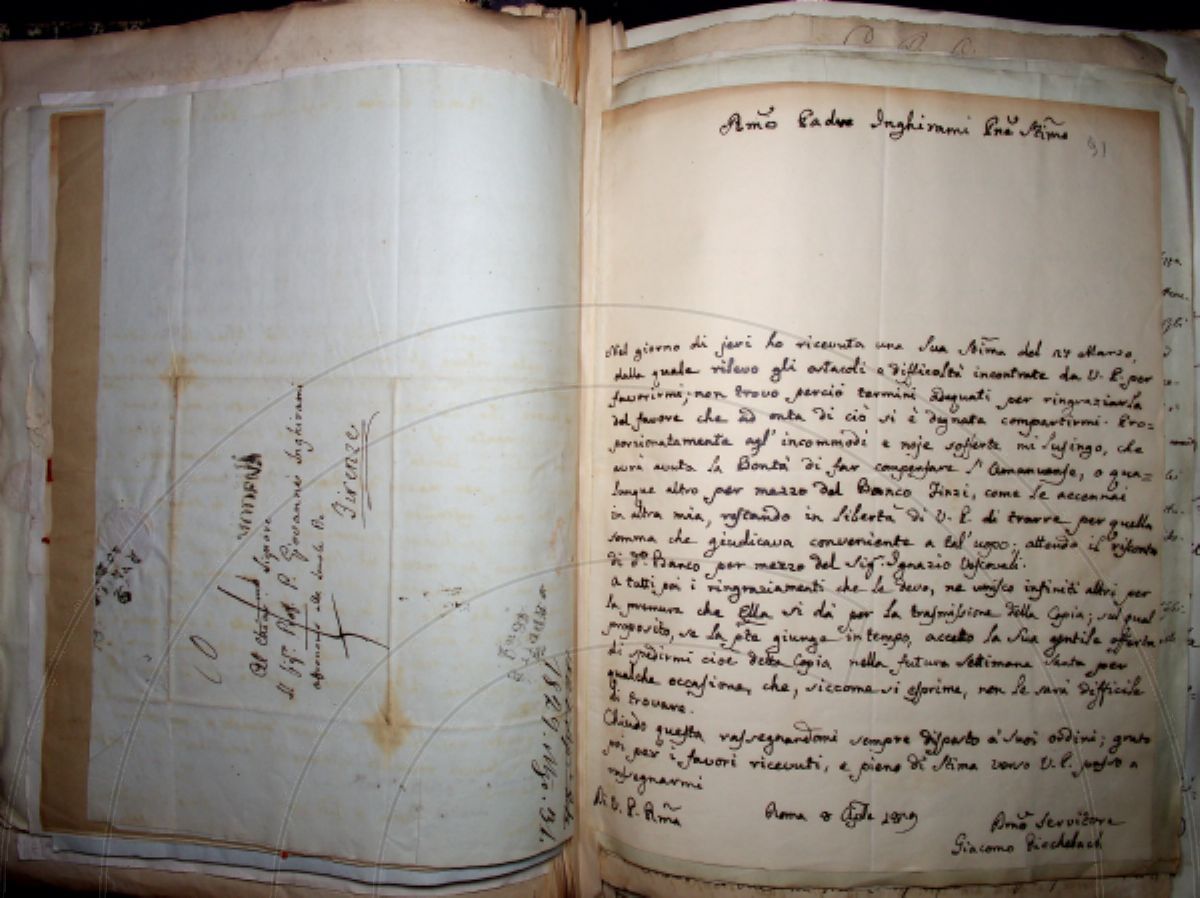 Al Chiarissimo Signore
Il Sig. P. Giovanni Inghirami
alle Scuole Pie
Firenze
1829.
Rmo Padre Inghirami Pne Stimo
91
Nel giorno di jeri ho ricevuta una Sua Stima del 27 Marzo,
dalla quale rilevo gli ostacoli e difficoltà incontrate da V. P. per
favorirmi; non trovo perciò termini adeguati per ringraziarla
del favore che ad onta di ciò si è degnata compartirmi. Pro=
porzionatamente agl' incommodi e noje sofferte mi lusingo, che
avrà avuta la Bontà di far compensare l' Amanuense, o qua=
lunque altro per mezzo del Banco Finzi, come le accennai
in altra mia, restando in libertà di V. P. di trarre per quella
somma che giudicava conveniente a tal' uopo: attendo il
di do. Banco per mezzo del Sig. Ignazio Vescovali.
A tutti poi i ringraziamenti che le devo, ne unisco infiniti altri per
la premura che Ella si dà per la trasmissione della Copia; sul qual
proposito, se la pte giunge in tempo, accetto la Sua gentile offerta
di spedirmi cioè detta Copia nella futura Settimana Santa per
qualche occasione, che, siccome si esprime, non le sarà difficile
di trovare.
Chiudo questa rassegnandomi sempre disposto a' Suoi ordini; grato
poi per i favori ricevuti, e pieno di Stima verso V. P. passo a
rassegnarmi
Di V. P. Rma
Roma 8 Aple 1829
Servitore
Giacomo